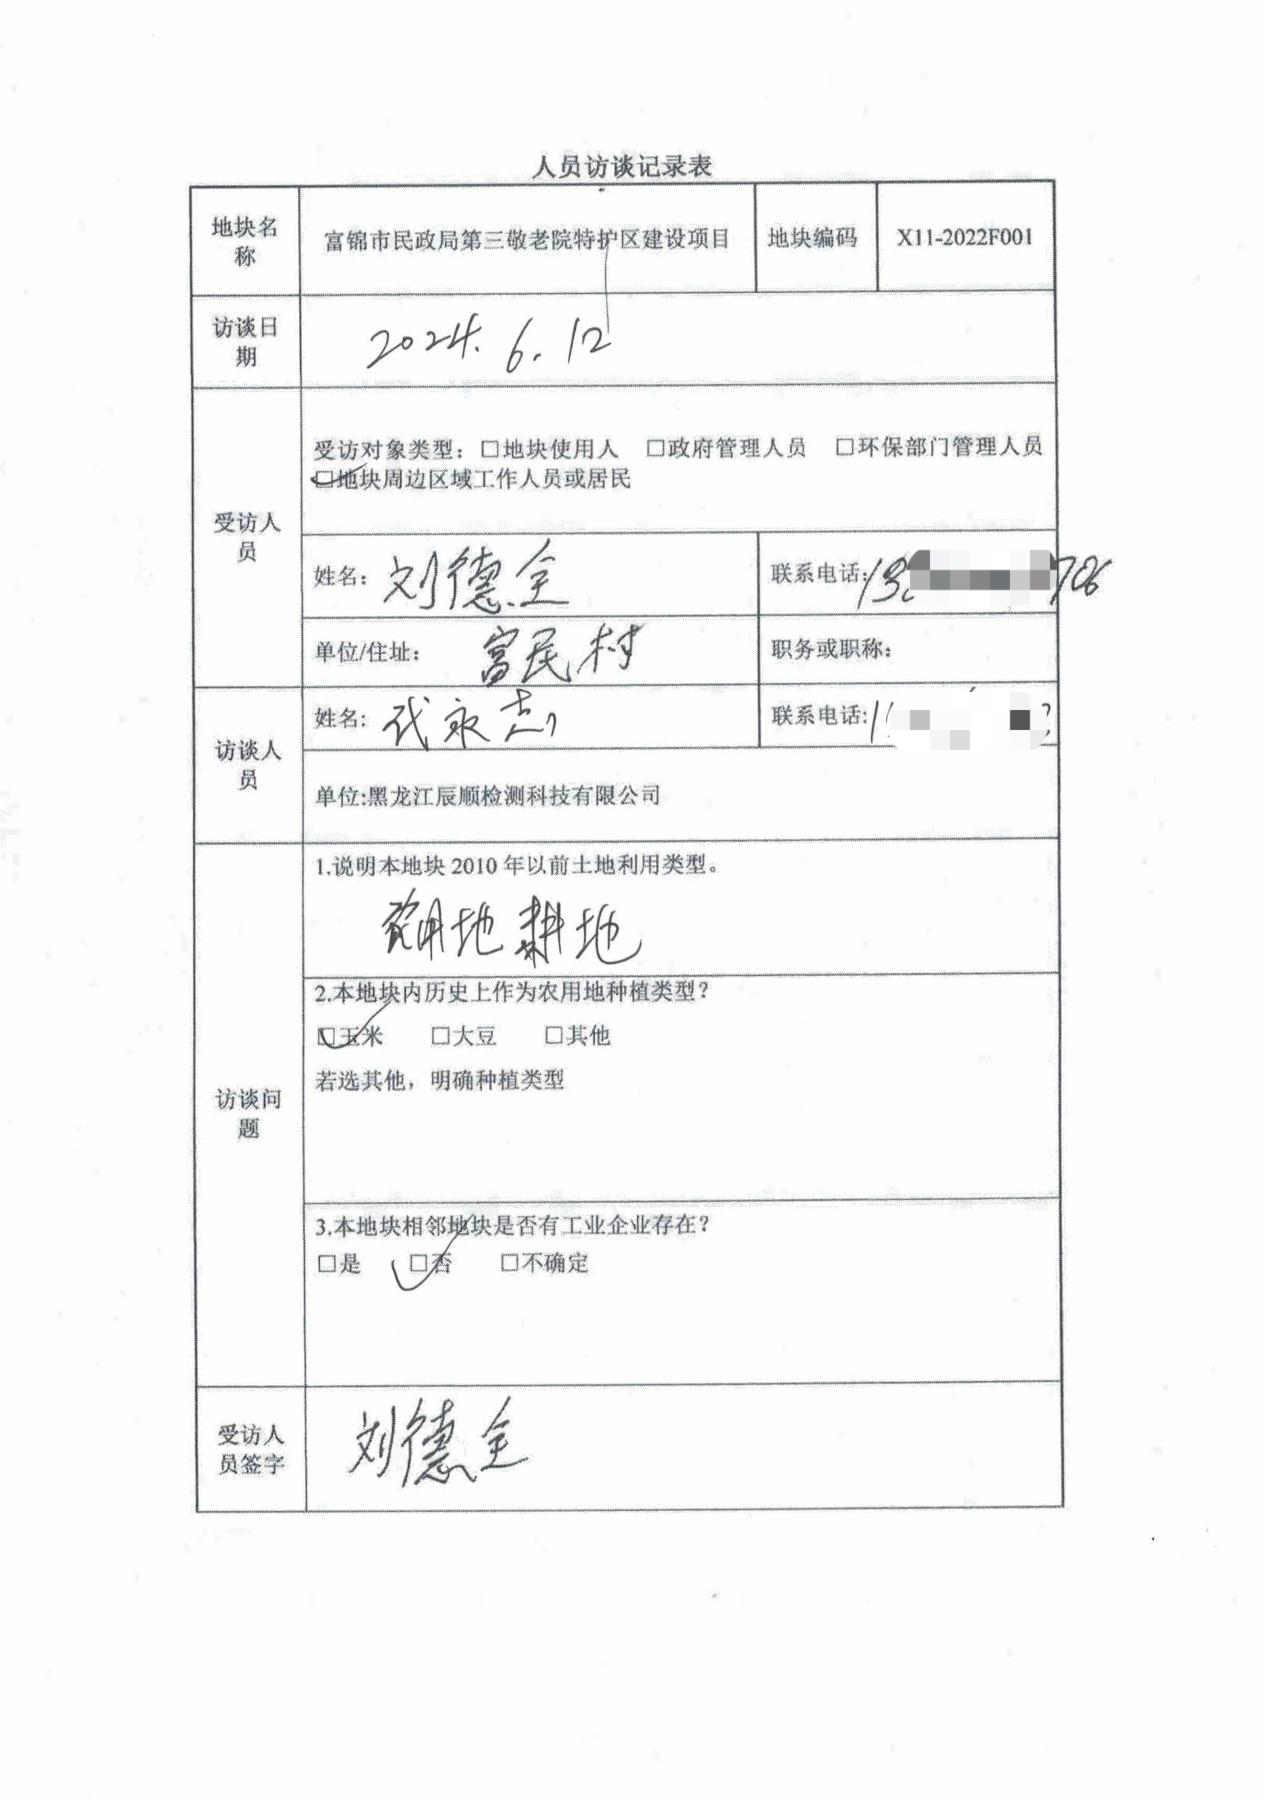 人员访谈记录表
地块名称 富锦市民政局第三敬老院特护区建设项目 地块编码 X11-2022F001
访谈日期 2024.6.12
受访人员
受访对象类型：□地块使用人 □政府管理人员 □环保部门管理人员
☑地块周边区域工作人员或居民
姓名：刘德全 联系电话:13 706
单位/住址：富民村 职务或职称：
访谈人员
姓名：代永志 联系电话:1
单位:黑龙江辰顺检测科技有限公司
访谈问题
1.说明本地块 2010 年以前土地利用类型。
农用地 耕地
2.本地块内历史上作为农用地种植类型？
☑玉米 □大豆 □其他
若选其他，明确种植类型
3.本地块相邻地块是否有工业企业存在？
□是 ☑否 □不确定
受访人员签字 刘德全